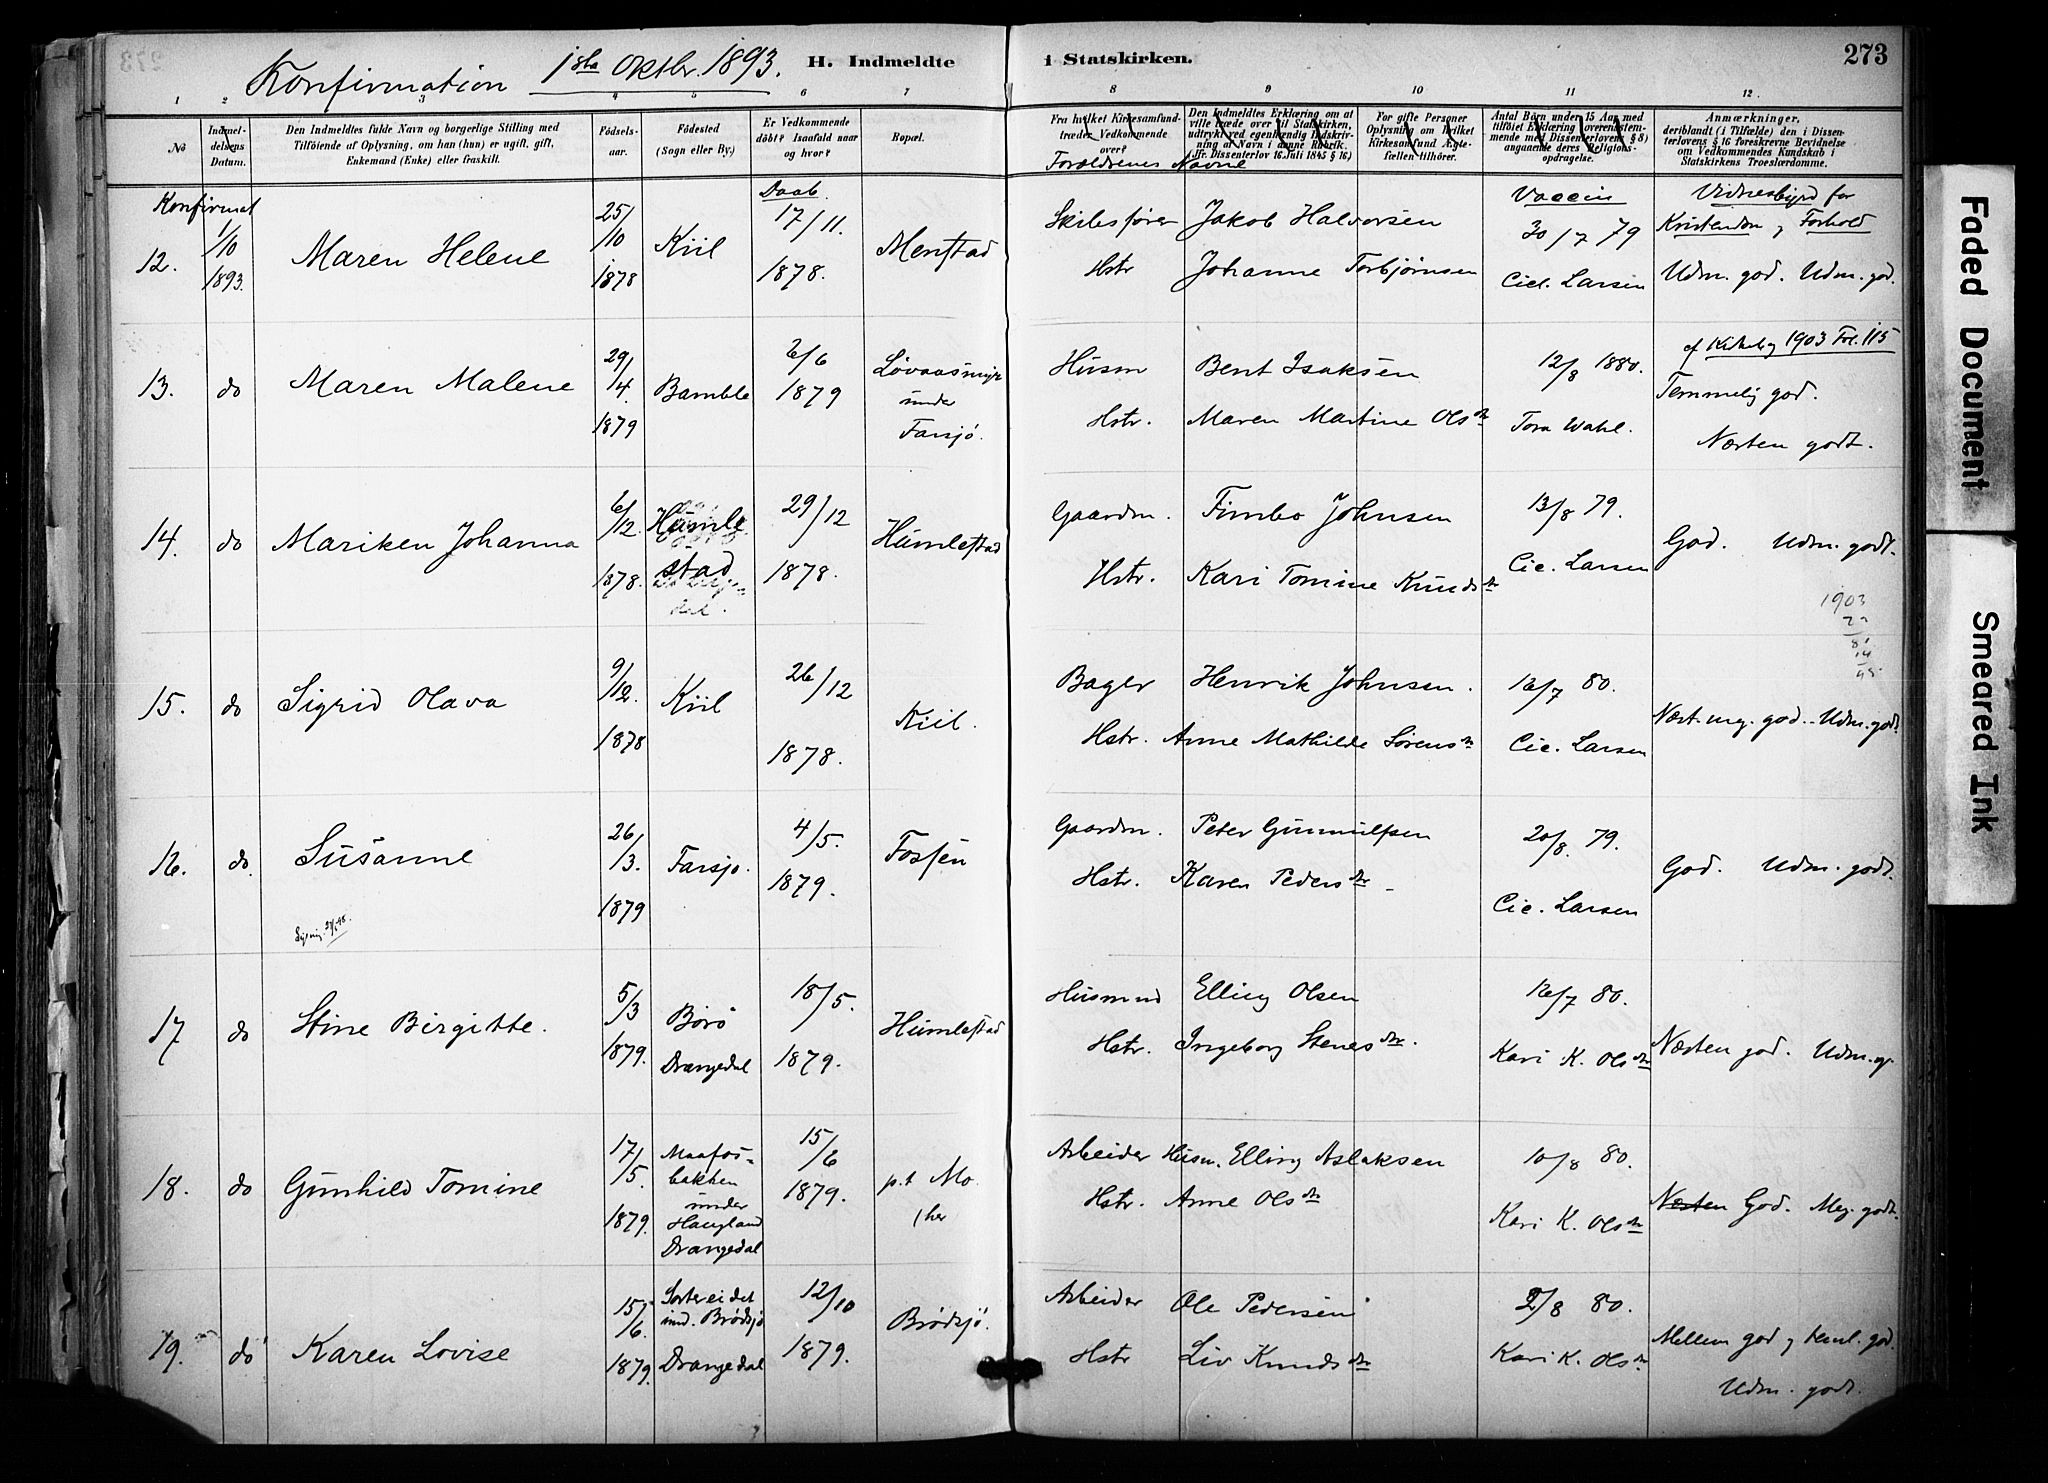 273
Konfirmation 1ste Oktbr. 1893.
H. Indmeldte i Statskirken.
1 2 3 4 5 6 7 8 9 10 11 12.
No
Indmel-
delsens
Datum.
Den Indmeldtes fulde Navn og borgerlige Stilling med
Tilföiende af Oplysning, om han (hun) er ugift, gift,
Enkemand (Enke) eller fraskilt.
Födsels-
aar.
Födested
(Sogn eller By.)
Er Vedkommende
döbt? Isaafald naar
og hvor?
Bopæl.
Fra hvilket Kirkesamfund-
træder Vedkommende
over?
Den Indmeldtes Erklæring om at
ville træde over til Statskirken,
udtrykt ved egenhændig Indskriv-
ning af Navn i denne Rubrik.
(Jfr. Dissenterlov 16 Juli 1845 § 16)
For gifte Personer
Oplysning om hvilket
Kirkesamfund Ægte-
fællen tilhörer.
Antal Börn under 15 Aar med
tilföiet Erklæring (overensstem-
mende med Dissenterlovens § 8)
angaaende deres Religions-
opdragelse.
Anmærkninger,
deriblandt (i Tilfælde) den i Dissen-
terlovens § 16 foreskrevne Bevidnelse
om Vedkommendes Kundskab i
Statskirkens Troeslærdomme.
Forældrenes Navne
Konfirmat
Daab.
Vaccin
Vidnesbyrd for
Kristendom og Forhold
12. 1/10 1893. Maren Helene 25/10 1878 Kiil 17/11. 1878. Menstad
Skibsfører Jakob Halvorsen 30/7 79
Hstr Johanne Torbjørnsen Cicl. Larsen Udm. god. Udm. god.
13. do Maren Malene 29/4. 1879 Bamble 6/6 1879 Løvaasmyr
under
Farsjö.
Husm Bent Isaksen 12/8 1880. cf Kirkebog 1903 Fol. 115
Hstr. Maren Martine Olsdtr Tora Wahl. Temmelig god.
Næsten godt.
14. do Mariken Johanna 6/12. 1878. Humle
stad 29/12 1878. Humlestad
Gaardm. Fimbo Johnsen 13/8 79.
Hstr. Kari Tomine Knudsdtr Cic. Larsen God. Udm. godt.
1903
15. do Sigrid Olava 9/12. 1878 Kiil 26/12 1878. Kiil.
Bager Henrik Johnsen. 16/7 80.
Hstr. Anne Mathilde Sørensdtr Cic. Larsen Næst. meg. god. Udm. godt
16. do. Susanne 26/3. 1879 Farsjø. 4/5. 1879. Fossen
Gaardm. Peter Gunnulfsen 20/8. 79.
Hstr. Karen Pedersdtr Cic. Larsen God. Udm. godt.
17 do Stine Birgitte. 5/3 1879. Börö
Drangedal 18/5. 1879. Humlestad
Husmnd Elling Olsen 16/7 80.
Hstr. Ingeborg Stenesdtr. Kari K. Olsdtr Næsten god. Udm. g.
18. do Gunhild Tomine 17/5. 1879. Maafos-
bakken
under
Haugland
Drangedal 15/6 1879. p.t Mo
(her
Arbeider Husm. Elling Aslaksen 10/8 80.
Hstr. Anne Olsdtr Kari K. Olsdtr Næsten God. Meg. godt.
19. do Karen Lovise 15/6. 1879. Sortereidet
und. Brödsjö
Drangedal 12/10 1879. Brödsjö.
Arbeider Ole Pedersen 2/8 80.
Hstr Liv Knudsdtr Kari K. Olsdtr Mellem god og teml. god.
Udm. godt.
Faded Document
Smeared Ink